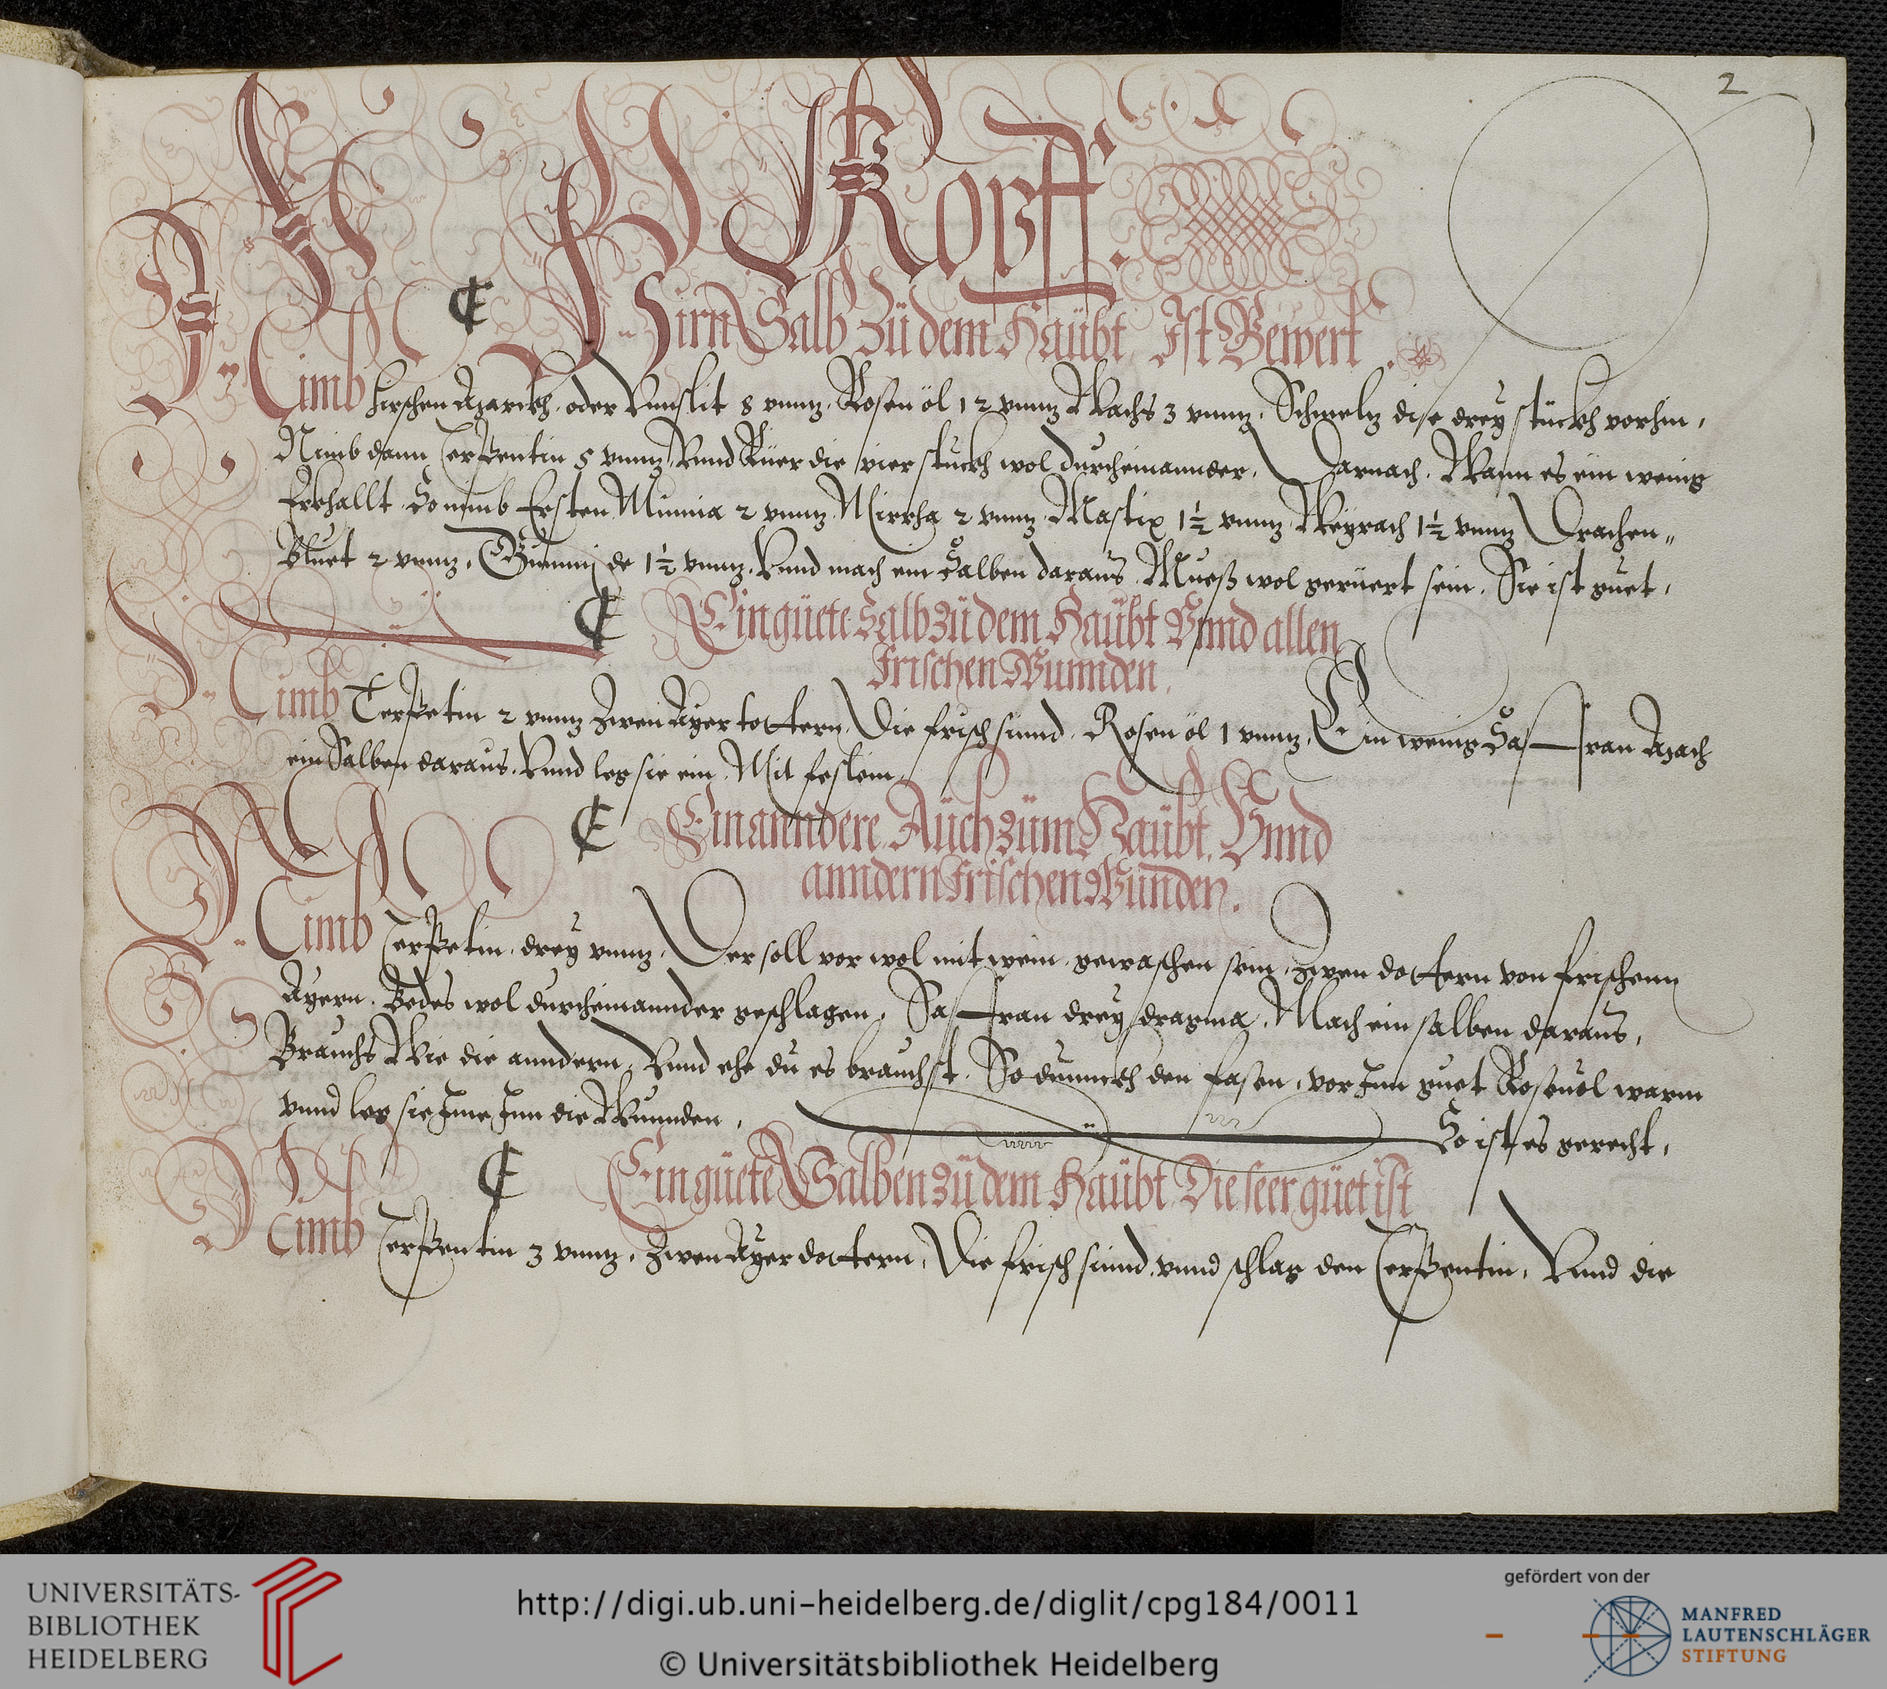 2
Kopff.
¶ Hirn Salb Zu dem Haübt Ist Bewert.
Nimb hirschen Marckh. oder Vnnslit 8 vnnz. Rosen öl 12 vnnz Wachs 3 vnnz. Schmelz dise drey stückh vorhin,
Nimb dann Terpentin 5 vnnz. Vnnd Rüer die vier stückh wol durcheinannder. Darnach. Wann es ein wenig
Erkhallt. So nimb Ersten Mumia 2 vnnz. Mirrha 2 vnnz. Mastix 1½ vnnz Weyrach 1½ vnnz Drachen„
Bluet 2 vnnz. Gummj de 1½ vnnz. Vnnd mach ein Salben daraus. Mueß wol gerüert sein. Sie ist guet.
¶ Ein güete Salb zü dem Haübt Vnnd allen
Frischen Wunnden.
Nimb Terpetin 2 vnnz Zwen Ayer tottern. Die frisch sinnd. Rosen öl 1 vnnz. Ein wenig Saffran Mach
ein Salben daraus. Vnnd leg sie ein. Mit feslein.
¶ Ein anndere Aüch züm Haübt. Vnnd
anndern Frischen Wunden.
Nimb Terpetin. drey vnnz. Der soll vor wol mit wein. gewaschen sein. Zwen dottern von frischenn
Ayern. Bedes wol durcheinannder geschlagen. Saffran drey dragma. Mach ein salben daraus,
Brauchs Wie die anndern. Vnnd ehe du es brauchst. So dunnckh den fasen. vor Inn guet Rosenöl warm
vnnd leg sie Ime Inn die Wunnden. So ist es gerecht.
¶ Ein güete Salben zü dem Haübt Die seer güet ist
Nimb Terpentin 3 vnnz. Zwen Ayer dottern. Die frisch sinnd. vnnd schlag den Terpentin. Vnnd die
UNIVERSITÄTS-
BIBLIOTHEK
HEIDELBERG
http://digi.ub.uni-heidelberg.de/diglit/cpg184/0011
© Universitätsbibliothek Heidelberg
gefördert von der
MANFRED
LAUTENSCHLÄGER
STIFTUNG